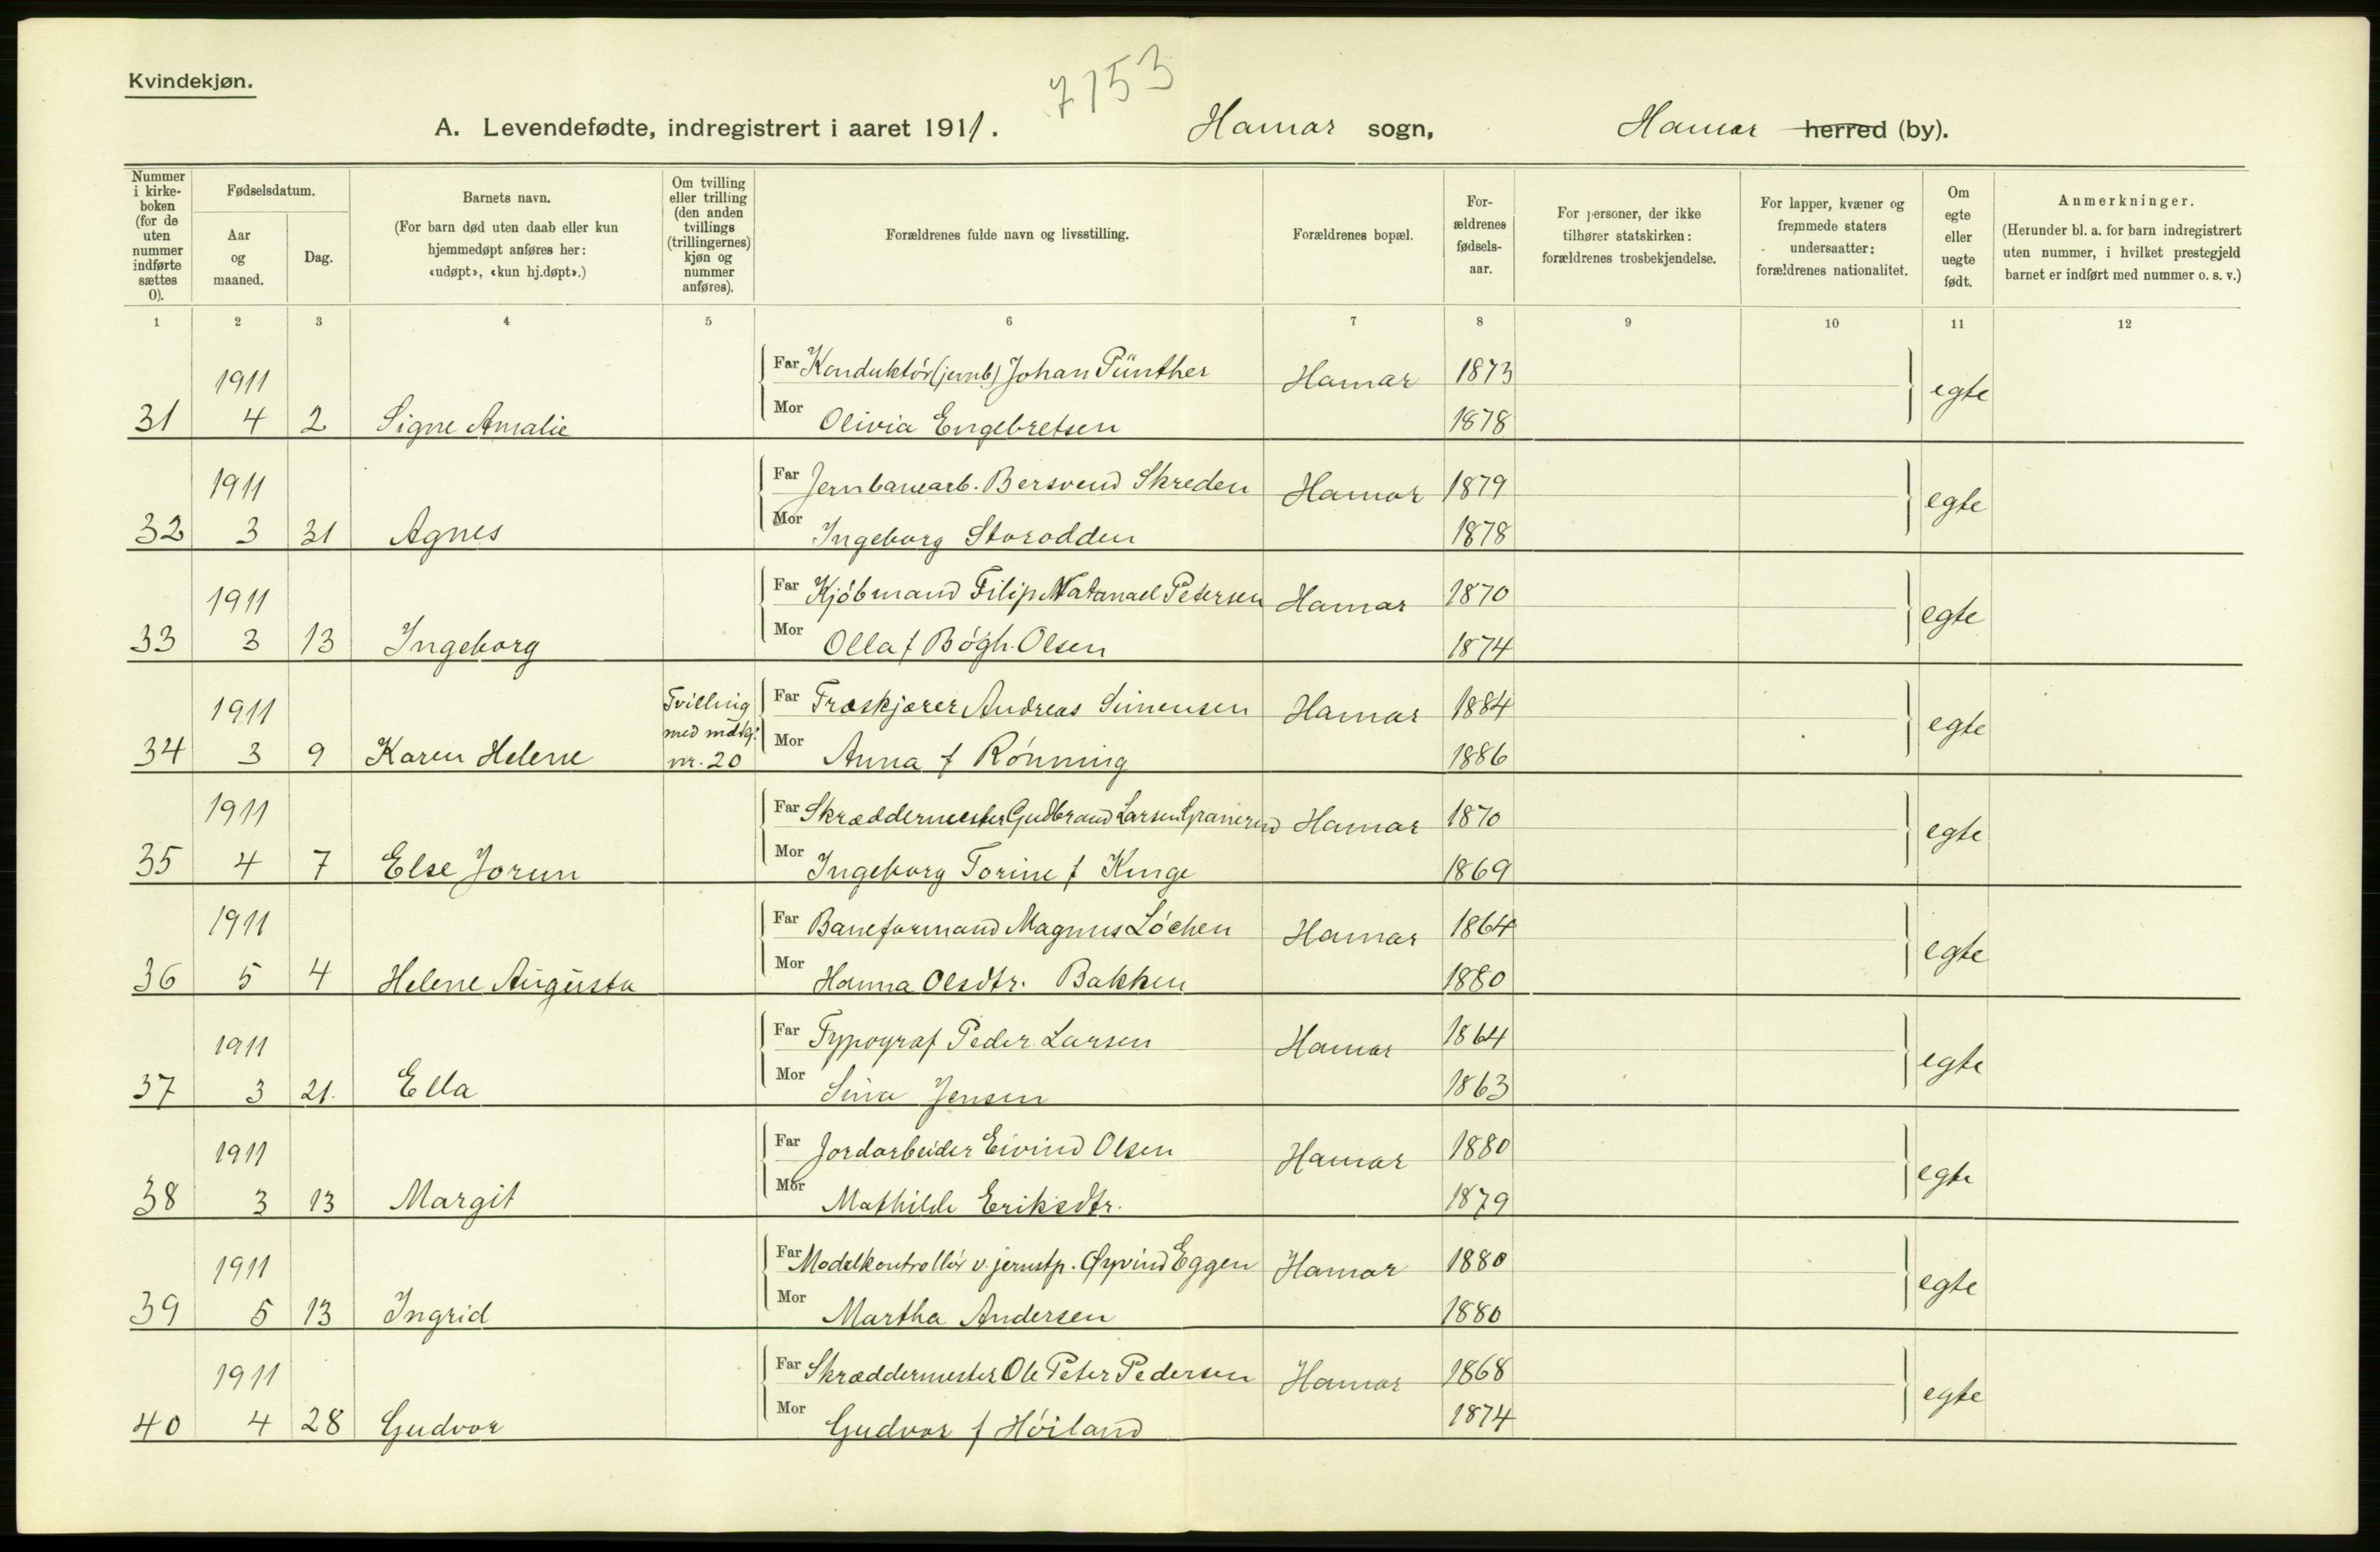 Kvindekjøn.
7153
A. Levendefødte, indregistrert i aaret 1911. Hamar sogn, Hamar herred (by).
Nummer i kirke-boken (for de uten nummer indførte sættes 0).
Fødselsdatum.
Aar og maaned.
Dag.
Barnets navn.
(For barn død uten daab eller kun hjemmedøpt anføres her: «udøpt», «kun hj.døpt».)
Om tvilling eller trilling (den anden tvillings (trillingernes) kjøn og nummer anføres).
Forældrenes fulde navn og livsstilling.
Forældrenes bopæl.
For-ældrenes fødsels-aar.
For personer, der ikke tilhører statskirken: forældrenes trosbekjendelse.
For lapper, kvæner og fremmede staters undersaatter: forældrenes nationalitet.
Om egte eller uegte født.
Anmerkninger.
(Herunder bl. a. for barn indregistrert uten nummer, i hvilket prestegjeld barnet er indført med nummer o. s. v.)
1 2 3 4 5 6 7 8 9 10 11 12
1911 Far Konduktör (jernb) Johan Pünther Hamar 1873 egte
31 4 2 Signe Amalie Mor Olivia Engebretsen 1878
1911 Far Jernbanearb. Bersvend Skreden Hamar 1879 egte
32 3 31 Agnes Mor Ingeborg Storodden 1878
1911 Far Kjöbmand Filip Natanael Petersen Hamar 1870 egte
33 3 13 Ingeborg Mor Olla f Bögh-Olsen 1874
1911 Tvilling Far Træskjærer Andreas Simensen Hamar 1884 egte
34 3 9 Karen Helene med mdkj. nr. 20 Mor Anna f Rönning 1886
1911 Far Skræddermester Gudbrand Larsen Granerud Hamar 1870 egte
35 4 7 Else Jorun Mor Ingeborg Torine f Kinge 1869
1911 Far Baneformand Magnus Löchen Hamar 1864 egte
36 5 4 Helene Augusta Mor Hanna Olsdtr. Bakken 1880
1911 Far Typograf Peder Larsen Hamar 1864 egte
37 3 21. Ella Mor Sina Jensen 1863
1911 Far Jordarbeider Eivind Olsen Hamar 1880 egte
38 3 13 Margit Mor Mathilde Eriksdtr. 1879
1911 Far Modelkontrollör v. jernstp. Øyvind Eggen Hamar 1880 egte
39 5 13 Ingrid Mor Martha Andersen 1880
1911 Far Skræddermester Ole Peter Pedersen Hamar 1868 egte
40 4 28 Gudvor Mor Gudvor f Höiland 1874